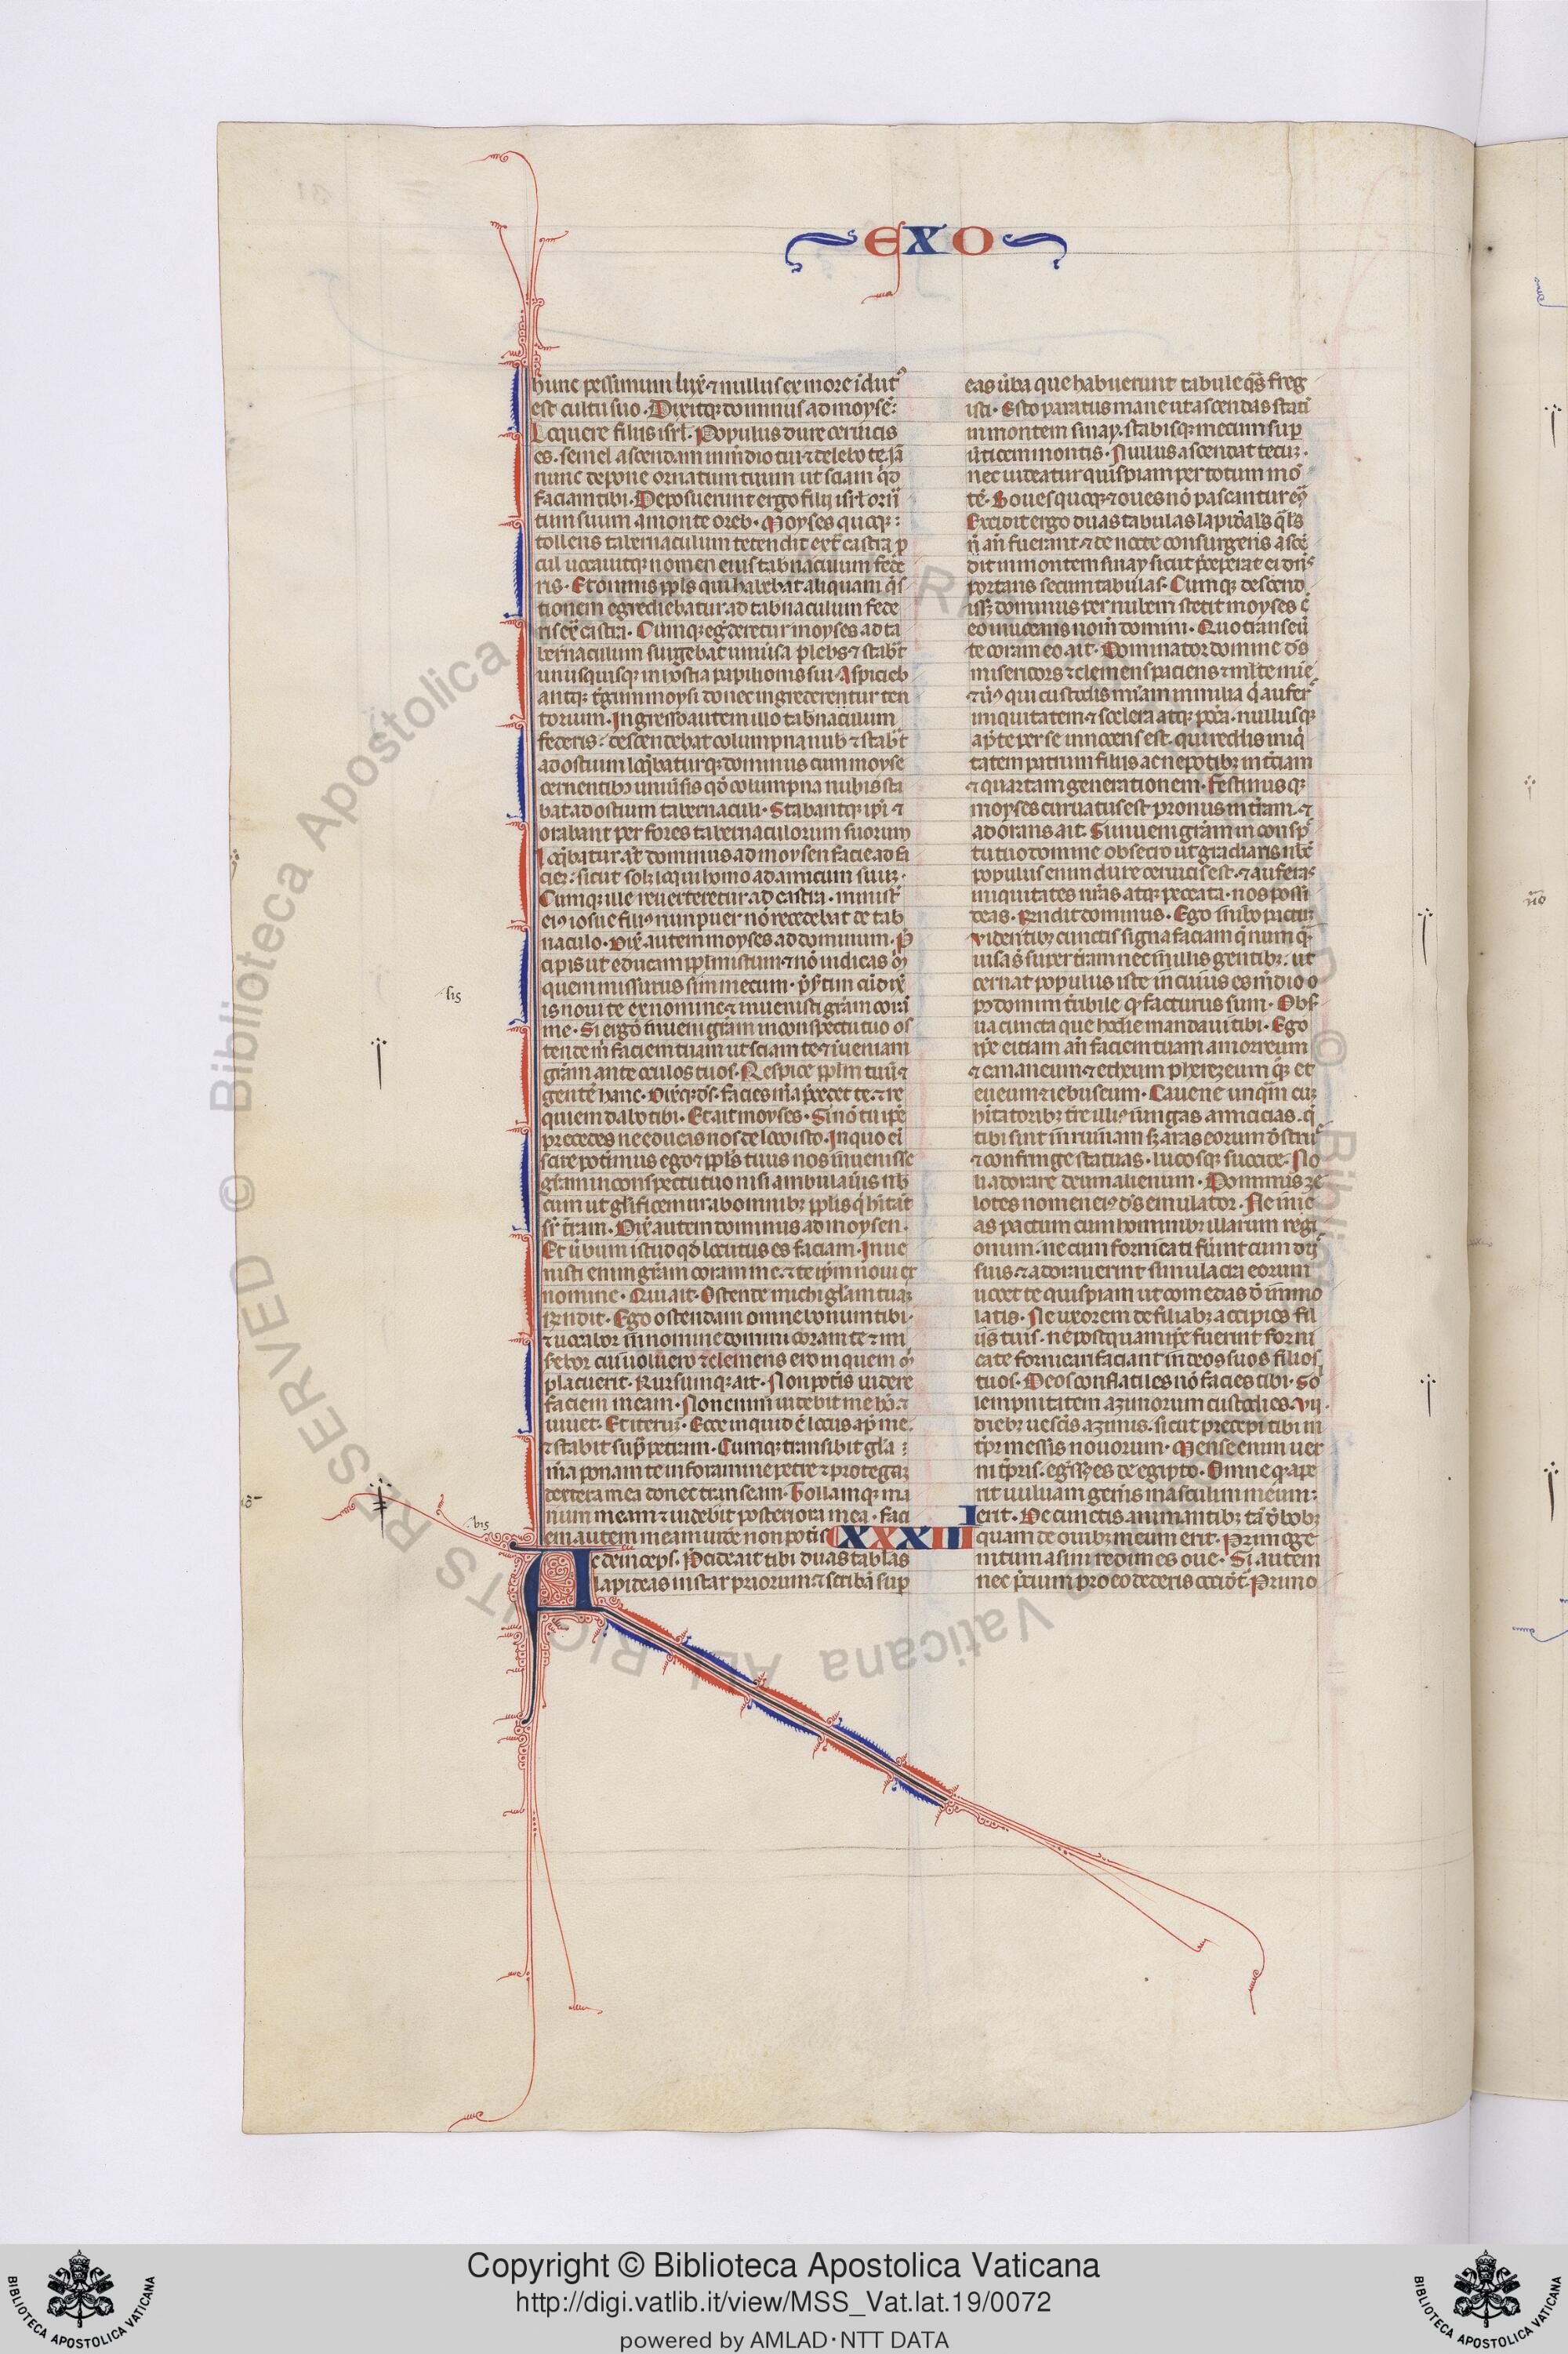 EXO
hunc pessimum luxͥ ⁊ nullus ex more īdutꝰ
est cultu suo. Dixitqꝫ dominus ad moysē:
Loquere filiis isrl̄. Populus dure ceruicis
es. semel ascendam in medio tui ⁊ delebo te. Jā
nunc depone ornatum tuum ut sciam qͥd
faciam tibi. Deposuerunt ergo filij isrl̄ ornā
tum suum a monte oreb. Moyses quoqꝫ:
tollens tabernaculum tetendit ext̄ castra ꝓ
cul uocauitqꝫ nomen eius tab̄naculum fede
ris. Et omnis ppl̄s qui habebat aliquam q̄s
tionem egrediebatur ad tab̄naculum fede
ris ex̄ castra. Cumqꝫ eg̃deretur moyses ad ta
bernaculum surgebat uniūsa plebs ⁊ stab̄t
unusquisqꝫ in hostia papilionis sui. Aspicieb
antqꝫ t̄gum moysi donec ingrederentur ten
torium. Ingresso autem illo tab̄naculum
federis: descendebat columpna nub̄ ⁊ stab̄t
ad ostium loq̄baturqꝫ dominus cum moyse
cernentibꝫ uniūsis qd̄ columpna nubis sta
bat ad ostium tabernaculi. Stabantqꝫ ip̄i ⁊
orabant per fores tabernaculorum suorum
Loq̄batur at̄ dominus ad moysen facie ad fa
ciē: sicut sol3 loqui homo ad amicum suū.
Cumqꝫ ille reuerteretur ad castra. minist̄
eiꝰ iosue filiꝰ nun puer nō recedebat de tab
naculo. Dix̄ autem moyses ad dominum. P̄
cipis ut educam ppl̄m istum ⁊ nō indicas m̄
quem missurus sim mecum. p̄s̄tim cū dix̄
is noui te ex nomine ⁊ inuenisti grām corā
me. Si ergo inueni grām in conspectu tuo os
tende m̄ faciem tuam ut sciam te ⁊ īueniam
grām ante oculos tuos. Respice ppl̄m tuū ⁊
gentē hanc. Dixͥqꝫ dn̄s. facies m̄a p̄cedet te. ⁊ re
quiem dabo tibi. Et ait moyses. Si nō tu ip̄e
precedes ne educas nos de loco isto. In quo eī
scire potimus ego ⁊ ppl̄s tuus nos inuenisse
grām in conspectu tuo nisi ambulaūis nob̄
cum ut gl̄ificemur ab omnibꝫ ppl̄is q̄ hītant
sr̄ t̄ram. Dix̄ autem dominus ad moysen.
Et ūbum istud qd̄ locutus es faciam. Inue
nisti enim grām coram me. ⁊ te ip̄m noui ex
nomine. Qui ait. Ostende michi glām tuā
R̄ndit. Ego ostendam omne bonum tibi.
⁊ uocabor in nomine domini coram te ⁊ mi
s̄ebor cui uoluero ⁊ clemens ero in quem m̄
placuerit. Rursumqꝫ ait. Non potis uidere
faciem meam. Non enim uidebit me hō. ⁊
uiuet. Et iterū. Ecce inquid ē locus ap̄ me.
⁊ stabit sup̄ petram. Cumqꝫ transibit gl̄a:
m̄a ponam te in foramine petre ⁊ protegaꝫ
dextera mea donec transeam. Tollamqꝫ ma
num meam ⁊ uidebit posteriora mea. faci
em autem meam uidē non potis XXXIIII
Ac deinceps. P̄cide ait tibi duas tablas
lapideas instar priorum ⁊ scribā sup̄
eas ūba que habuerunt tabule qͣs freg
isti. Esto paratus mane ut ascendas stati
in montem sinay. stabisqꝫ mecum sup̄
ūticem montis. Nullus ascendat tecū.
nec uideatur quispiam per totum mō
tē. Boues quoqꝫ ⁊ oues nō pascantur eͨ
Excidit ergo duas tabulas lapideas q̄les
ñ añ fuerant ⁊ de nocte consurgens ascē
dit in montem sinay sicut p̄ceperat ei dn̄s
portans secum tabulas. Cumqꝫ descend
iss3 dominus per nubem stetit moyses ē
eo inuocans nom̄ domini. Quo transeū
te coram eo ait. Dominator domine ds̄
misericors ⁊ clemens paciens ⁊ ml̄te mīe
⁊ ūꝰ qui custodis mīam in milia q̄ aufer
iniquitatem ⁊ scelera atqꝫ pctā. nullusqꝫ
ap̄ te per se innocens est. qui reddis iniq̄
tatem patrum filiis ac nepotibꝫ in t̄ciam
⁊ quartam generationem. Festinusqꝫ
moyses curuatus est pronus in t̄ram. ⁊
adorans ait. Si inueni grām in consp̄
tu tuo domine obsecro ut gradiaris nob̄c
populus enim dure ceruicis est. ⁊ auferas
iniquitates nr̄as atqꝫ peccata. nosqꝫ possi
deas. R̄ndit dominus. Ego inibo pactū
uidentibꝫ cunctis signa faciam q̄ numqͣ
uisa sūt super t̄ram nec in ullis gentibꝫ. ut
cernat populus iste in cuius es medio o
pꝰ domini t̄ribile qd̄ facturus sum. Obs̄
ua cuncta que hodie mandaui tibi. Ego
ip̄e eiciam añ faciem tuam amorreum
⁊ cananeum ⁊ etheum pherezeum qͦqꝫ et
eueum ⁊ iebuseum. Caue ne unqͣm cū
hītatoribꝫ t̄re illiꝰ iungas amicicias. q̄
tibi sint in ruinam s3 aras eorum dest̄ue
⁊ confringe statuas. lucosqꝫ succide. No
li adorare deum alienum. Dominus ze
lotes nomen eiꝰ ds̄ emulator. Ne ineͣ
as pactum cum hominibꝫ illarum regi
onum. ne cum fornicati fūint cum dijs
suis. ⁊ adorauerint simulacra eorum
uocet te quispiam ut comedas de immo
latis. Ne uxorem de filiabꝫ accipies fil
iis tuis. ne postquam ip̄e fuerint forni
cate fornicari faciant in deos suos filios
tuos. Deos conflatiles nō facies tibi. So
lempnitatem azimorum custodies. Vij
diebꝫ uescis azimis. sicut precepi tibi in
tp̄r messis nouorum. Mense enim uer
ni tp̄ris. egressꝰ es de egipto. Omne qd̄ ape
rit uuluam gen̄is masculini meum.
erit. De cunctis animantibꝫ tā de bobꝫ
quam de ouibꝫ meum erit. Primoge
nitum asini redimes oue. Si autem
nec p̄cium pro eo dederis occidet̄. Primo
bis
Copyright © Biblioteca Apostolica Vaticana
http://digi.vatlib.it/view/MSS_Vat.lat.19/0072
powered by AMLAD·NTT DATA
BIBLIOTECA APOSTOLICA VATICANA
BIBLIOTECA APOSTOLICA VATICANA